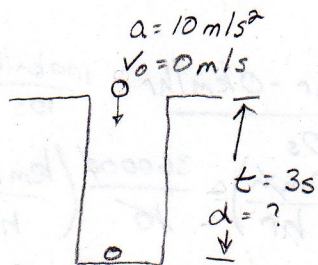 a = 10 m/s²
v₀ = 0 m/s
t = 3s
d = ?